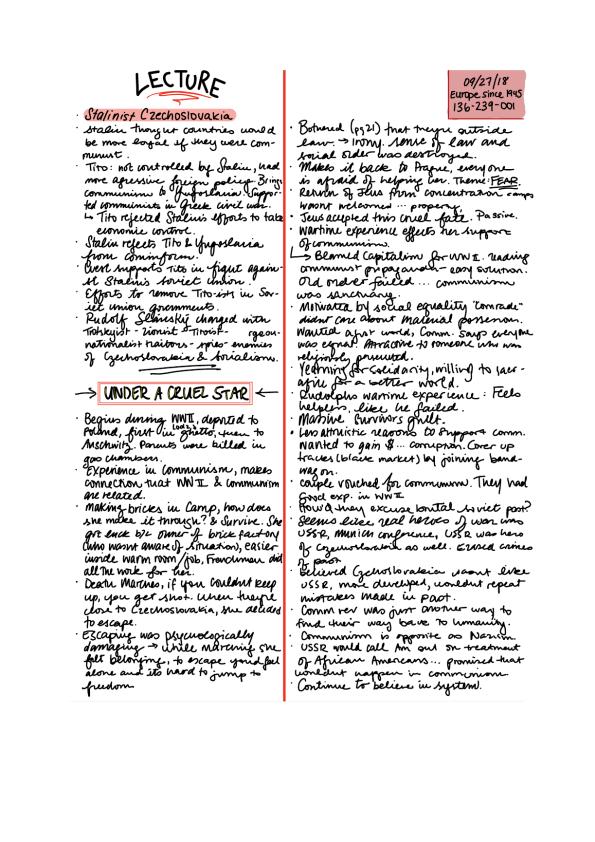 LECTURE
09/27/18
Europe since 1945
136-239-001
· Stalinist Czechoslovakia
· Stalin thought countries would
be more loyal if they were com-
munist.
· Tito: not controlled by Stalin, had
more agressive foreign policy. Brings
communism to Yugoslavia. Suppor-
ted communists in Greek civil war.
↳ Tito rejected Stalin's efforts to take
economic control.
· Stalin rejects Tito & Yugoslavia
from cominform.
· West supports tito in fight again-
st Stalin's soviet union.
· Efforts to remove Tito-ists in Sov-
iet union governments.
· Rudolf Slansky charged with
Trotskyist - zionist - Titoist -
nationalist traitors - spies - enemies
of Czechoslovakia & socialism.
→ UNDER A CRUEL STAR ←
· Begins during WWII, deported to
Poland, first in Lodz ghetto, then to
Auschwitz. Parents were killed in
gas chambers.
· Experience in Communism, makes
connection that WWII & communism
are related.
· Making bricks in camp, how does
she make it through? & Survive. She
got luck b/c owner of brick factory
(who wasn't aware of situation), easier
inside warm room/job, Frenchman did
all the work for her.
· Death Marches, if you couldn't keep
up, you get shot. When they're
close to Czechoslovakia, she decided
to escape.
· Escaping was psycologically
damaging → while marching she
felt belonging, to escape you'd feel
alone and its hard to jump to
freedom
· Bothered (pg 21) that they're outside
law. → irony. sense of law and
social order was destroyed.
· Makes it back to Prague, everyone
is afraid of helping her. Theme: FEAR.
· Return of Jews from concentration camps
wasn't welcomed ... property.
· Jews accepted this cruel fate. Passive.
· Wartime experience effects her support
of communism.
↳ Blamed Capitalism for WWII. reading
communist propaganda - easy solution.
Old order failed ... communism
was sanctuary.
· Motivated by social equality "comrade"
didn't care about material possession.
· Wanted a just world, Comm. says everyone
was equal. Attractive to someone who was
religiously persecuted.
· Yearning for solidarity, willing to sacr-
ifice for a better world.
· Rudolphs wartime experience: Feels
helpless, like he failed.
· Massive survivors guilt.
· Less altruistic reasons to support comm.
wanted to gain $ ... corruption. Cover up
tracks (black market) by joining band-
wagon.
· couple vouched for communism. They had
good exp. in WWII
· How'd they excuse brutal soviet past?
· Seems like real heroes of war was
USSR, munich conference, USSR was hero
of Czechoslovakia as well. Erased crimes
of past
· Believed Czechoslovakia wasnt like
USSR, more developed, wouldn't repeat
mistakes made in past.
· Comm rev was just another way to
find their way back to humanity.
· Communism is opposite as Nazism
· USSR would call Am out on treatment
of African Americans ... promised that
wouldn't happen in communism
· Continue to believe in system.